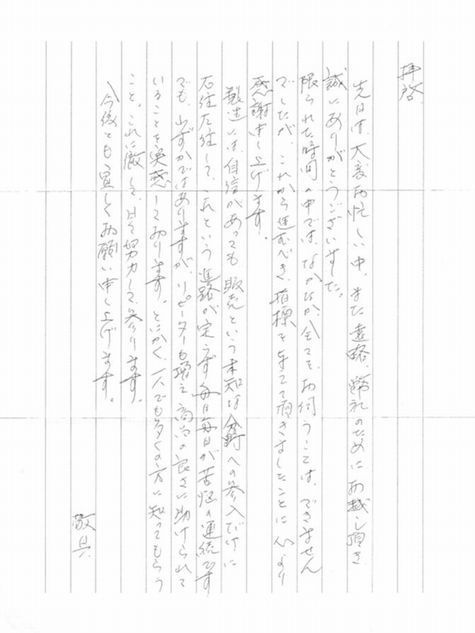 拝啓、
先日は、大変お忙しい中、また遠路、弊社のためにお越し頂き
誠にありがとうございました。
限られた時間の中では、なかなか全てをお伺うことは、できません
でしたが、これから進むべき指標を立てて頂きましたことに心より
感謝申し上げます。
製造は、自信があっても販売という未知な分野への参入だけに
右往左往して、これという進路が定まらず毎日毎日が苦悩の連続です
でも、少しずつではありますが、リピーターも増え商品の良さに助けられて
いることを実感しております。とにかく、一人でも多くの方に知ってもらう
こと。これに徹して、日々努力して参ります。
今後とも宜しくお願い申し上げます。
敬具